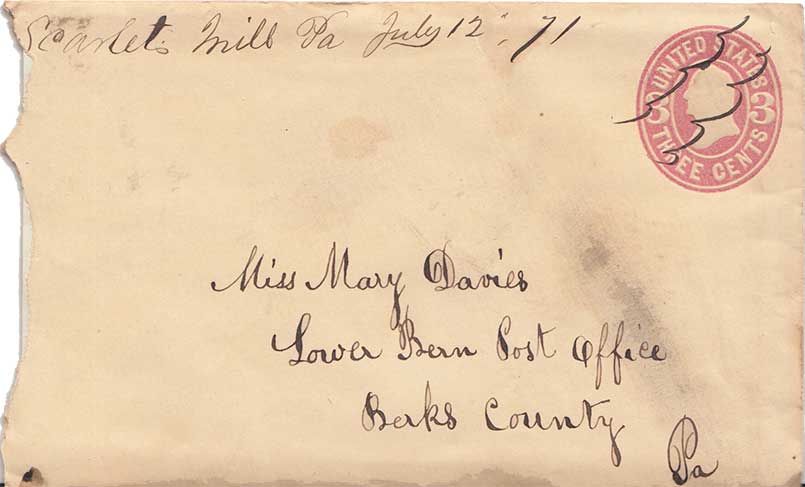 Scarlets Mill Pa July 12", 71
UNITED STATES
3 3
THREE CENTS
Miss Mary Davies
Lower Bern Post Office
Berks County
Pa